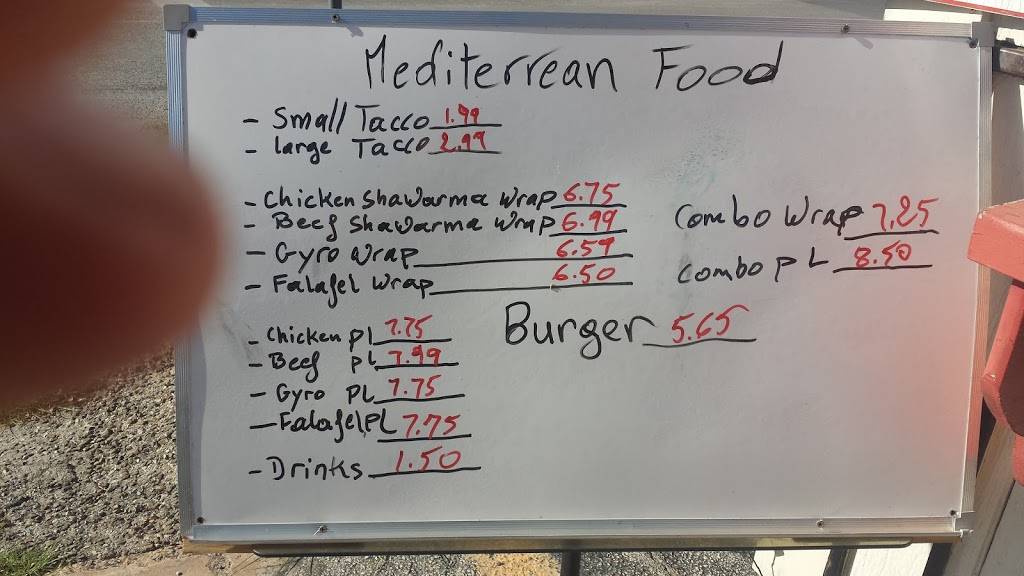 Mediterrean Food
- Small Tacco 1.99
- large Tacco 2.99
- Chicken Shawarma Wrap 6.75
- Beef Shawarma Wrap 6.99
- Gyro Wrap 6.59
- Falafel Wrap 6.50
Combo Wrap 7.25
Combo PL 8.50
- Chicken PL 7.75
- Beef PL 7.99
- Gyro PL 7.75
- Falafel PL 7.75
- Drinks 1.50
Burger 5.65